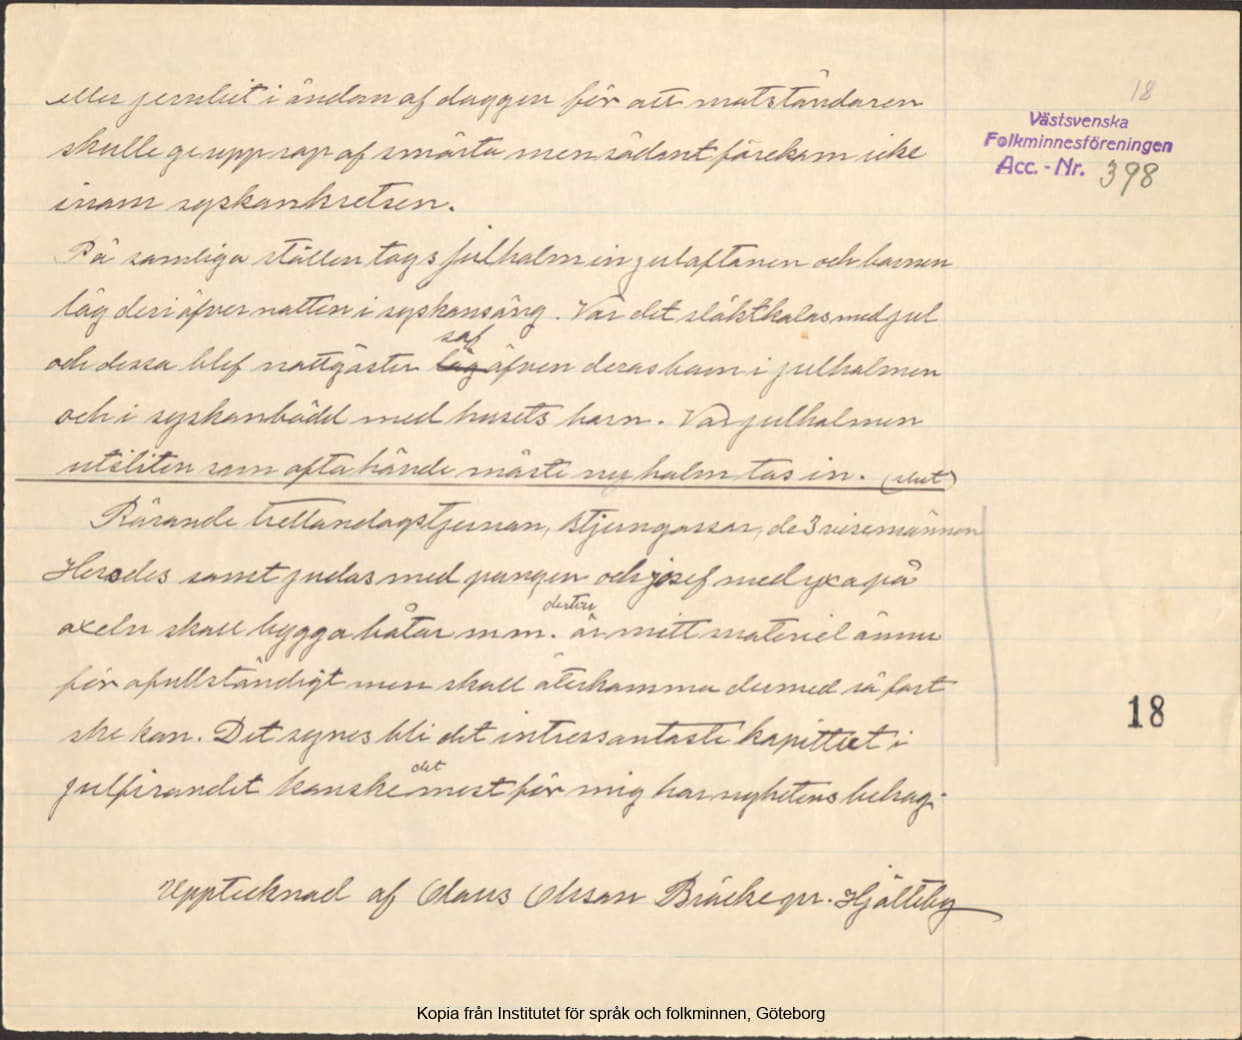 18
Västsvenska
Folkminnesföreningen
Acc.-Nr. 398
eller jernbit i ändan af daggen för att motståndaren
skulle ge upp rop af smärta men sådant förekom icke
inom syskonkretsen.
På samliga ställen togs julhalm in julaftonen och barnen
låg deri öfver natten i syskonsäng. Var det släktkalas med jul
och dessa blef nattgäster låg sof äfven deras barn i julhalmen
och i syskonbädd med husets barn. Var julhalmen
utsliten som ofta hände måste ny halm tas in. (slut)
Rörande trettondagstjernan, stjerngossar, de 3 vise männen
Herodes samt judas med pungen och josef med yxa på
axeln skall bygga båtar m.m. dertill är mitt materiel ännu
för ofullständigt men skall återkomma dermed så fort
ske kan. Det synes bli det intressantaste kapitlet i
julfirandet kanske det mest för mig har nyhetens behag.
18
Upptecknad af Claus Olsson Bräcke pr. Hjälteby
Kopia från Institutet för språk och folkminnen, Göteborg